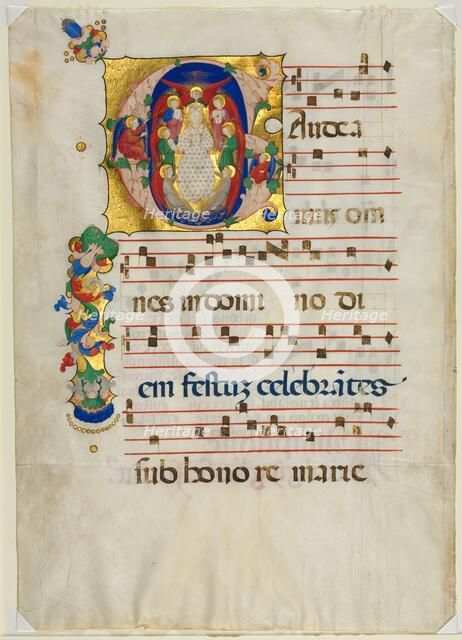 GAudea
Heritage Heritage
mus om
nes in domi no di
Heritage Heritage
em festuz celebrates
Heritage Heritage
sub hono re marie